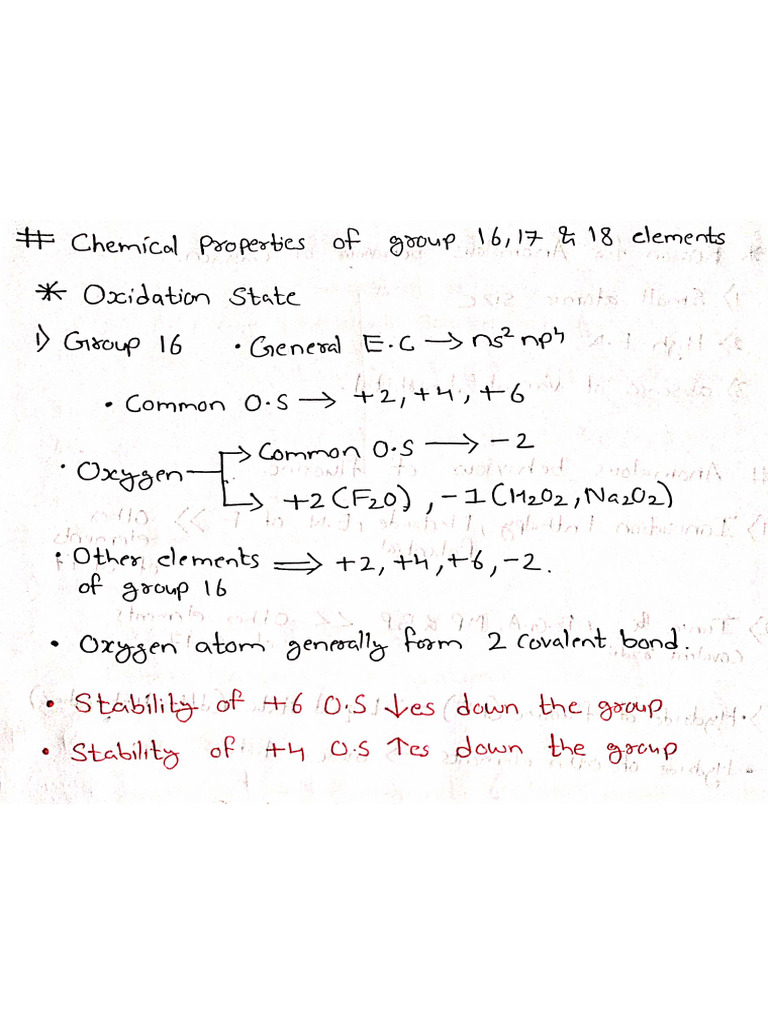 # Chemical Properties of group 16, 17 & 18 elements
* Oxidation State
1) Group 16 • General E.C → ns² np⁴
• Common O.S → +2, +4, +6
• Oxygen → Common O.S → -2
→ +2 (F₂O), -1 (H₂O₂, Na₂O₂)
• Other elements of group 16 ⇒ +2, +4, +6, -2.
• Oxygen atom generally form 2 covalent bond.
• Stability of +6 O.S ↓es down the group
• Stability of +4 O.S ↑es down the group